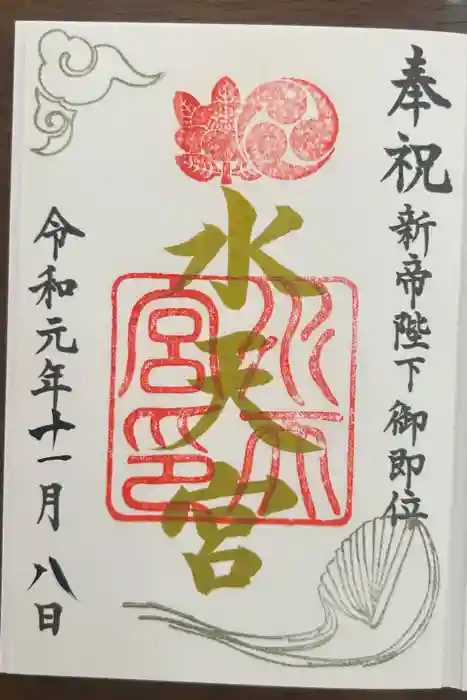 奉祝新帝陛下御即位
水天宮
水天宮印
令和元年十一月八日